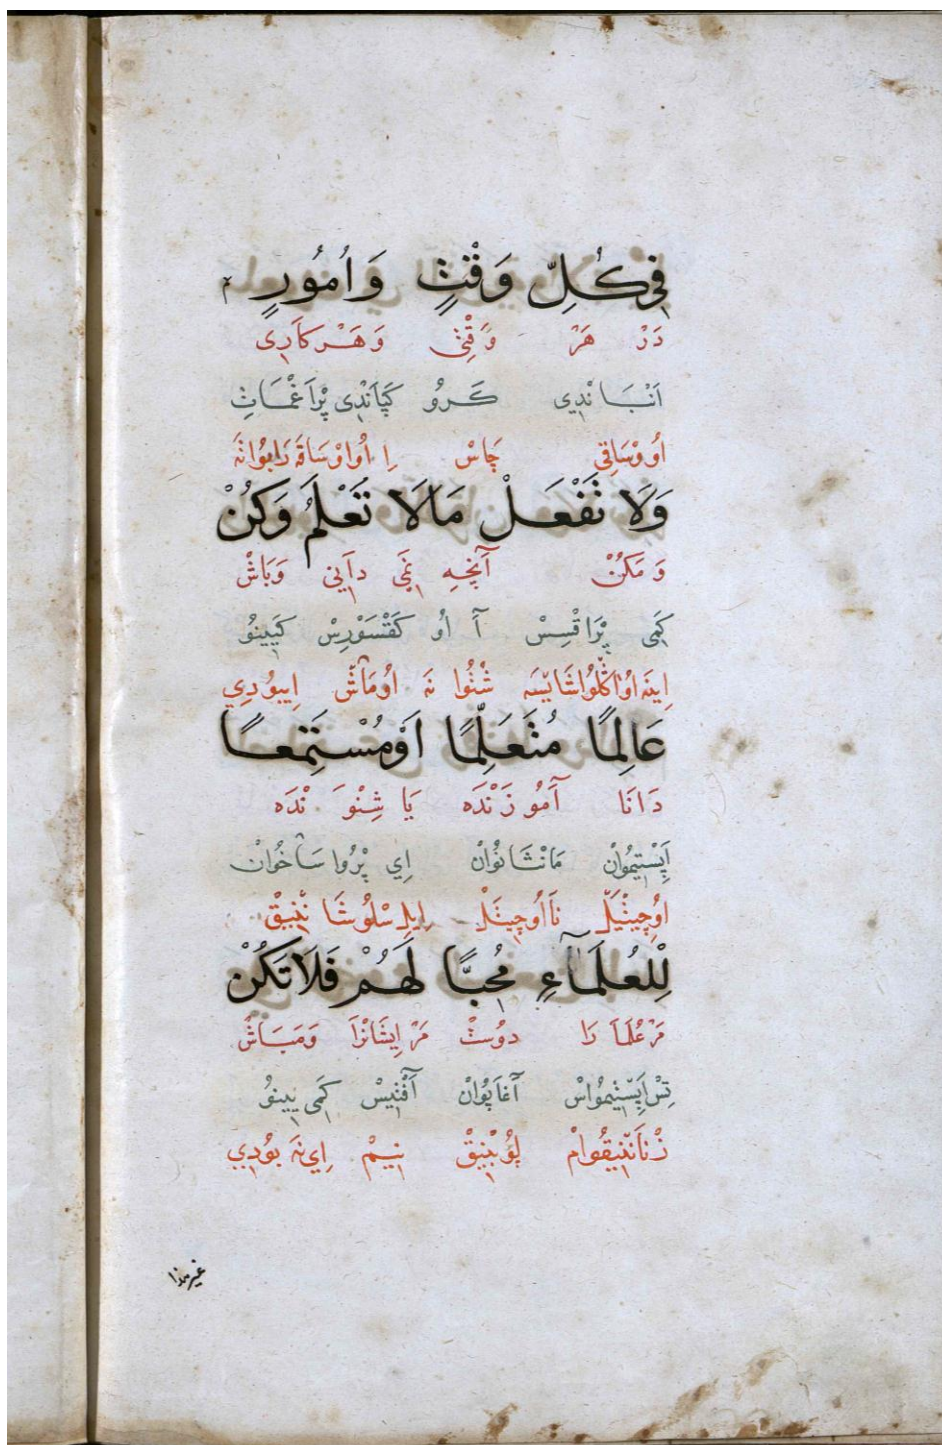 فِي كُلِّ وَقْتٍ وَاُمُورٍ
دَرْ هَرْ وَقْتِی وَهَرْکَارِی
اَنْبَانْدِي كَرُو كَپَاَنْدِی پْرَاَغْمَاثِ
اُووْسَاقِي چَاسْ رِا اُواوْسَاقَه رَابُوانَه
وَلَا تَفْعَلْ مَالَا تَعْلَمُ وَكُنْ
وَ مَکُنْ آنچِه نَمِی دٰانِي وَبَاشْ
كَمِی پْرَاقْسِسْ آ اُو كَقْسَوْرِسْ كَيِينُو
شْتُوا نَه اِيبوُدِي
عَالِمًا مُتَعَلِّمًا اَوْمُسْتَمِعًا
دَانَا آمُوزَنْدَه يَا شِنْوَنْدَه
اَپِسْتِيمُوانْ مَانْثَانُوانْ اِي پْرُوا سَاخُوانْ
اُوچِيتَلْ نَااُوچِيتَلْ اِيلِ سْلُوشَا نْنِيقْ
لِلْعُلَمَآءِ مُحِبًّا لَهُمْ فَلَا تَكُنْ
مَرْعُلَمَا رَا دوُسْتْ مَرْ اِيشَانْرَا وَمَبَاشْ
تِسْ اَپِسْتِيمُواسْ آغَاپُوانْ آفْتِيسْ كَمِی يِينُو
زْنَانْنِيقُوامْ لِوُبْنِيقْ نِيمْ اِي نَه بوُدِي